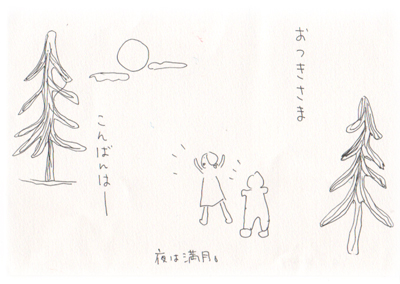 おつきさま
こんばんはー
夜は満月。